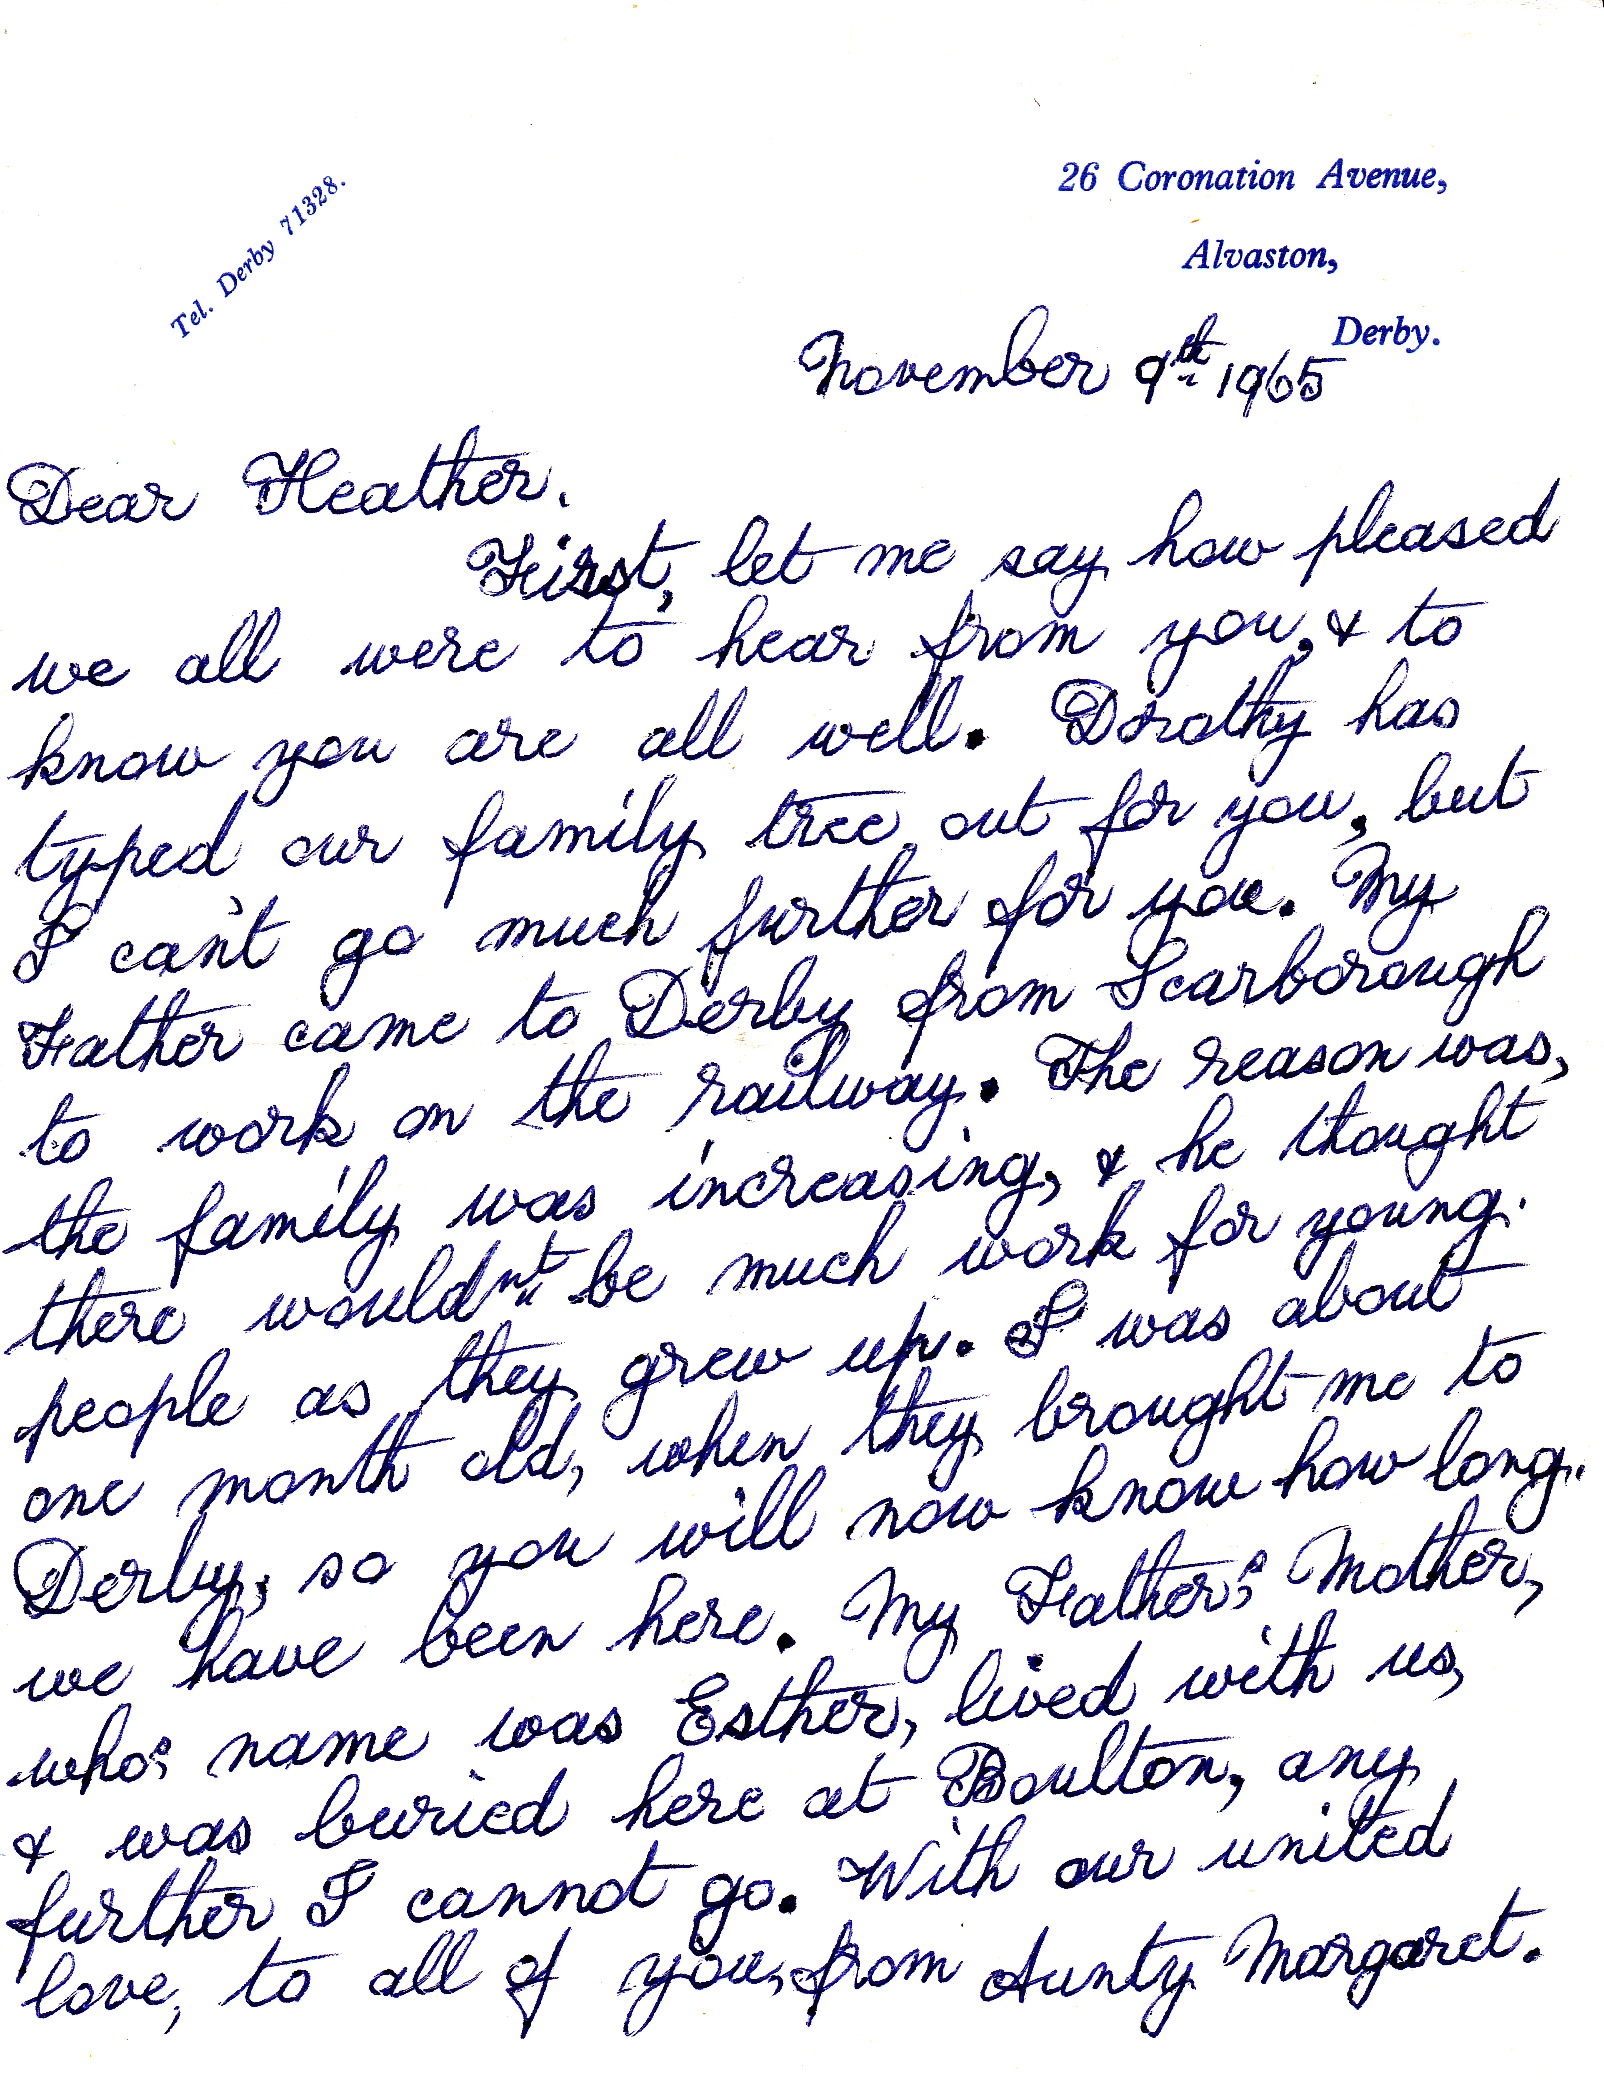 Tel. Derby 71328.
26 Coronation Avenue,
Alvaston,
Derby.
November 9th 1965
Dear Heather.
First, let me say how pleased
we all were to hear from you, & to
know you are all well. Dorothy has
typed our family tree out for you, but
I can't go much further for you. My
Father came to Derby from Scarborough
to work on the railway. The reason was,
the family was increasing, & he thought
there wouldn't be much work for young
people as they grew up. I was about
one month old, when they brought me to
Derby, so you will now know how long
we have been here. My Father's Mother,
who's name was Esther, lived with us,
& was buried here at Boulton, any
further I cannot go. With our united
love, to all of you, from Aunty Margaret.